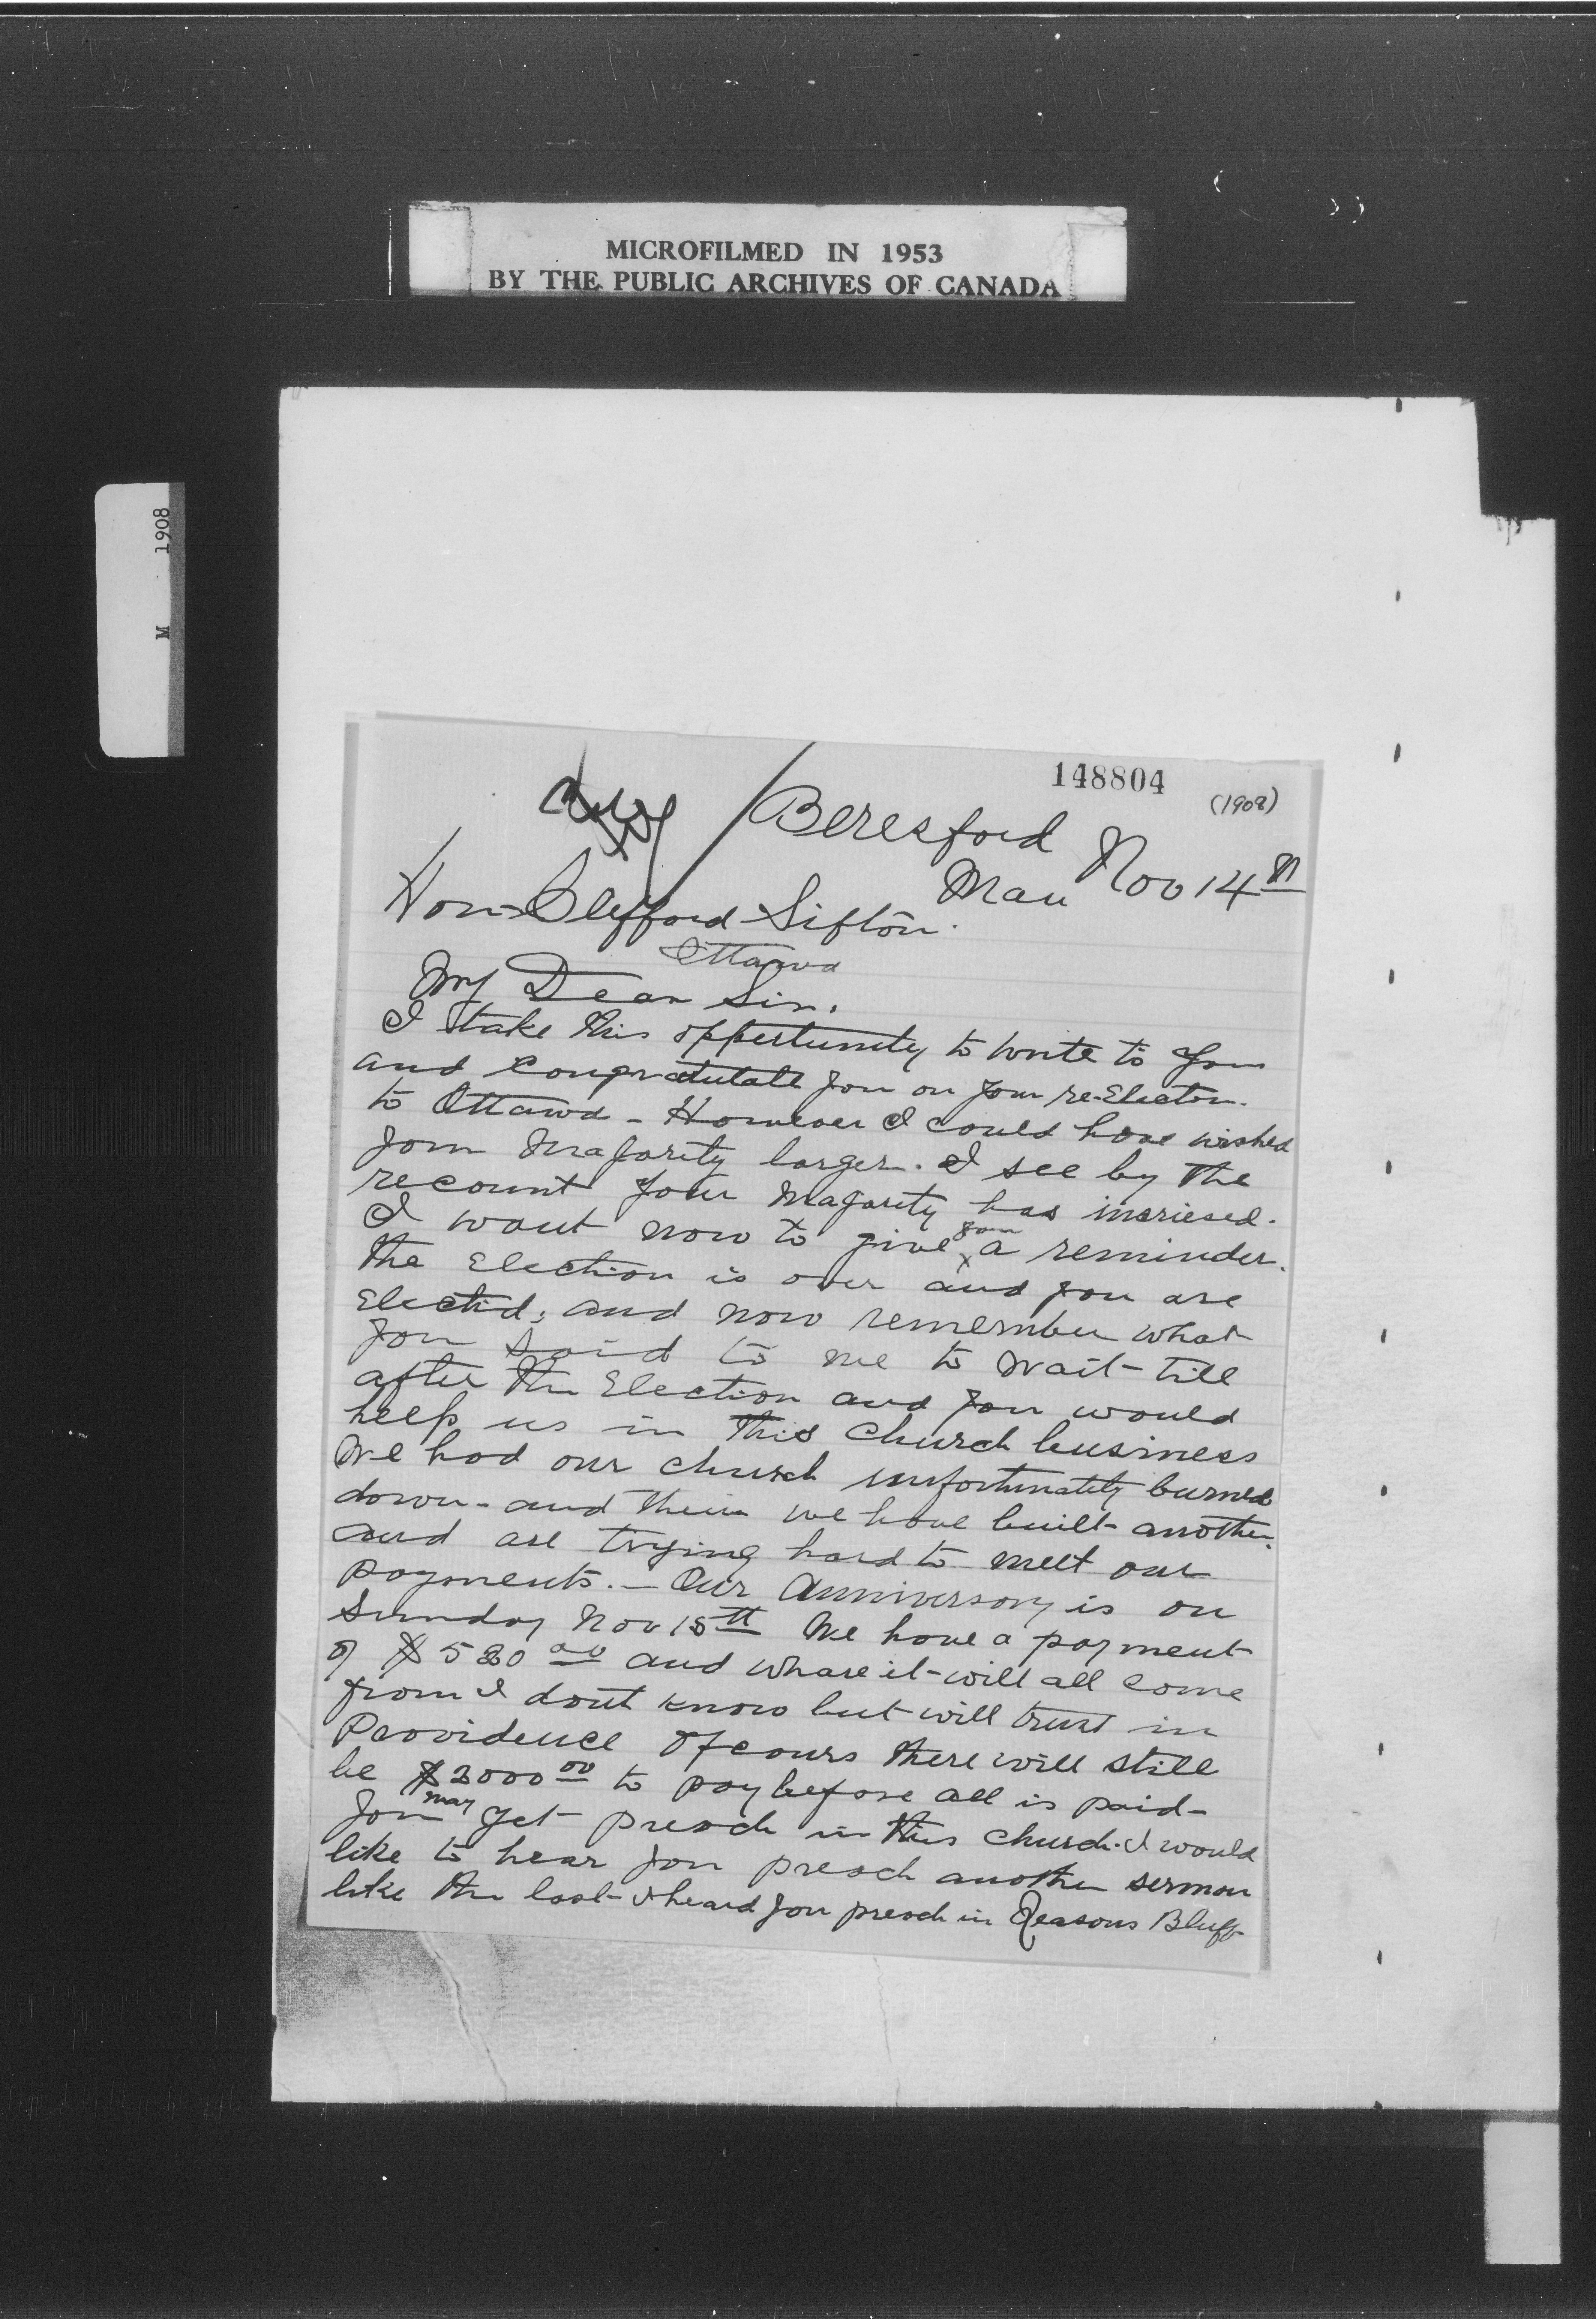 MICROFILMED IN 1953
BY THE PUBLIC ARCHIVES OF CANADA
M 1908
148804
(1908)
Beresford
Man Nov 14th
Hon Clifford Sifton.
Ottawa
My Dear Sir,
I take this oppertunity to write to you
and Congratulate you on your re-Election.
to Ottawa - However I could have wished
your Majority larger. I see by the
recount your Majority has incriesed.
I want now to give you a reminder.
the Election is over and you are
Elected, and now remember what
you said to me to Wait till
after the Election and you would
help us in this Church business
We had our church unfortunatly burned
down - and then we have built another.
and are trying hard to meet our
payments. - Our Anniversary is on
Sunday Nov 15th We have a payment
of $ 580 00 and whare it will all come
from I dont know but will trust in
Providence Of cours there will still
be $2000 00 to pay before all is paid -
you may yet preach in this church. I would
like to hear you preach another sermon
like the last I heard you preach in Reasons Bluff